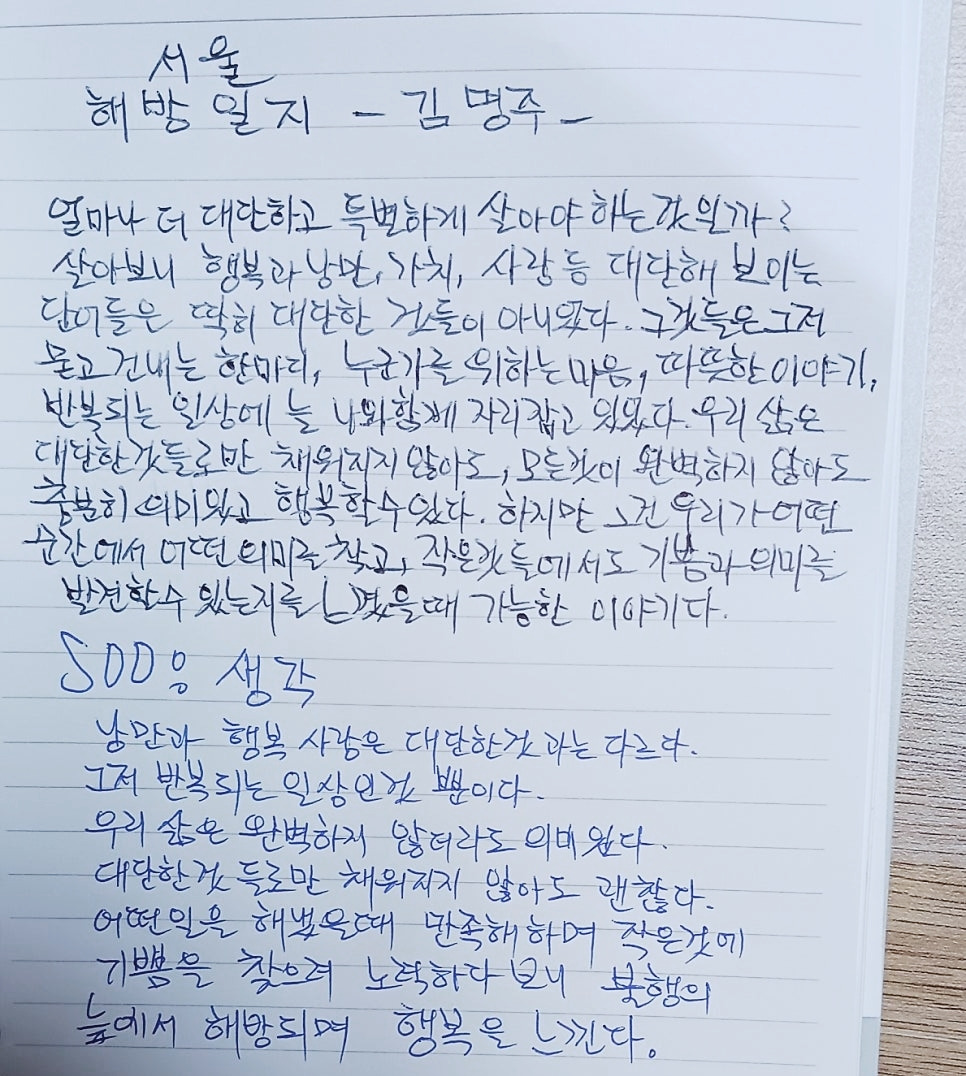 서울
해방일지 - 김명주 -
얼마나 더 대단하고 특별하게 살아야 하는 것일까?
살아보니 행복과 낭만, 가치, 사랑 등 대단해 보이는
단어들은 딱히 대단한 것들이 아니었다. 그것들은 그저
묻고 건내는 한마디, 누군가를 위하는 마음, 따뜻한 이야기,
반복되는 일상에 늘 나와 함께 자리잡고 있었다. 우리 삶은
대단한 것들로만 채워지지 않아도, 모든 것이 완벽하지 않아도
충분히 의미있고 행복할 수 있다. 하지만 그건 우리가 어떤
순간에서 어떤 의미를 찾고, 작은것들에서도 기쁨과 의미를
발견할 수 있는지를 느꼈을 때 가능한 이야기다.
SOO응 생각
낭만과 행복 사랑은 대단한 것과는 다르다.
그저 반복되는 일상인것 뿐이다.
우리 삶은 완벽하지 않더라도 의미 있다.
대단한것 들로만 채워지지 않아도 괜찮다.
어떤일을 해냈을때 만족해 하며 작은것에
기쁨을 찾으려 노력하다 보니 불행의
늪에서 해방되며 행복을 느낀다.